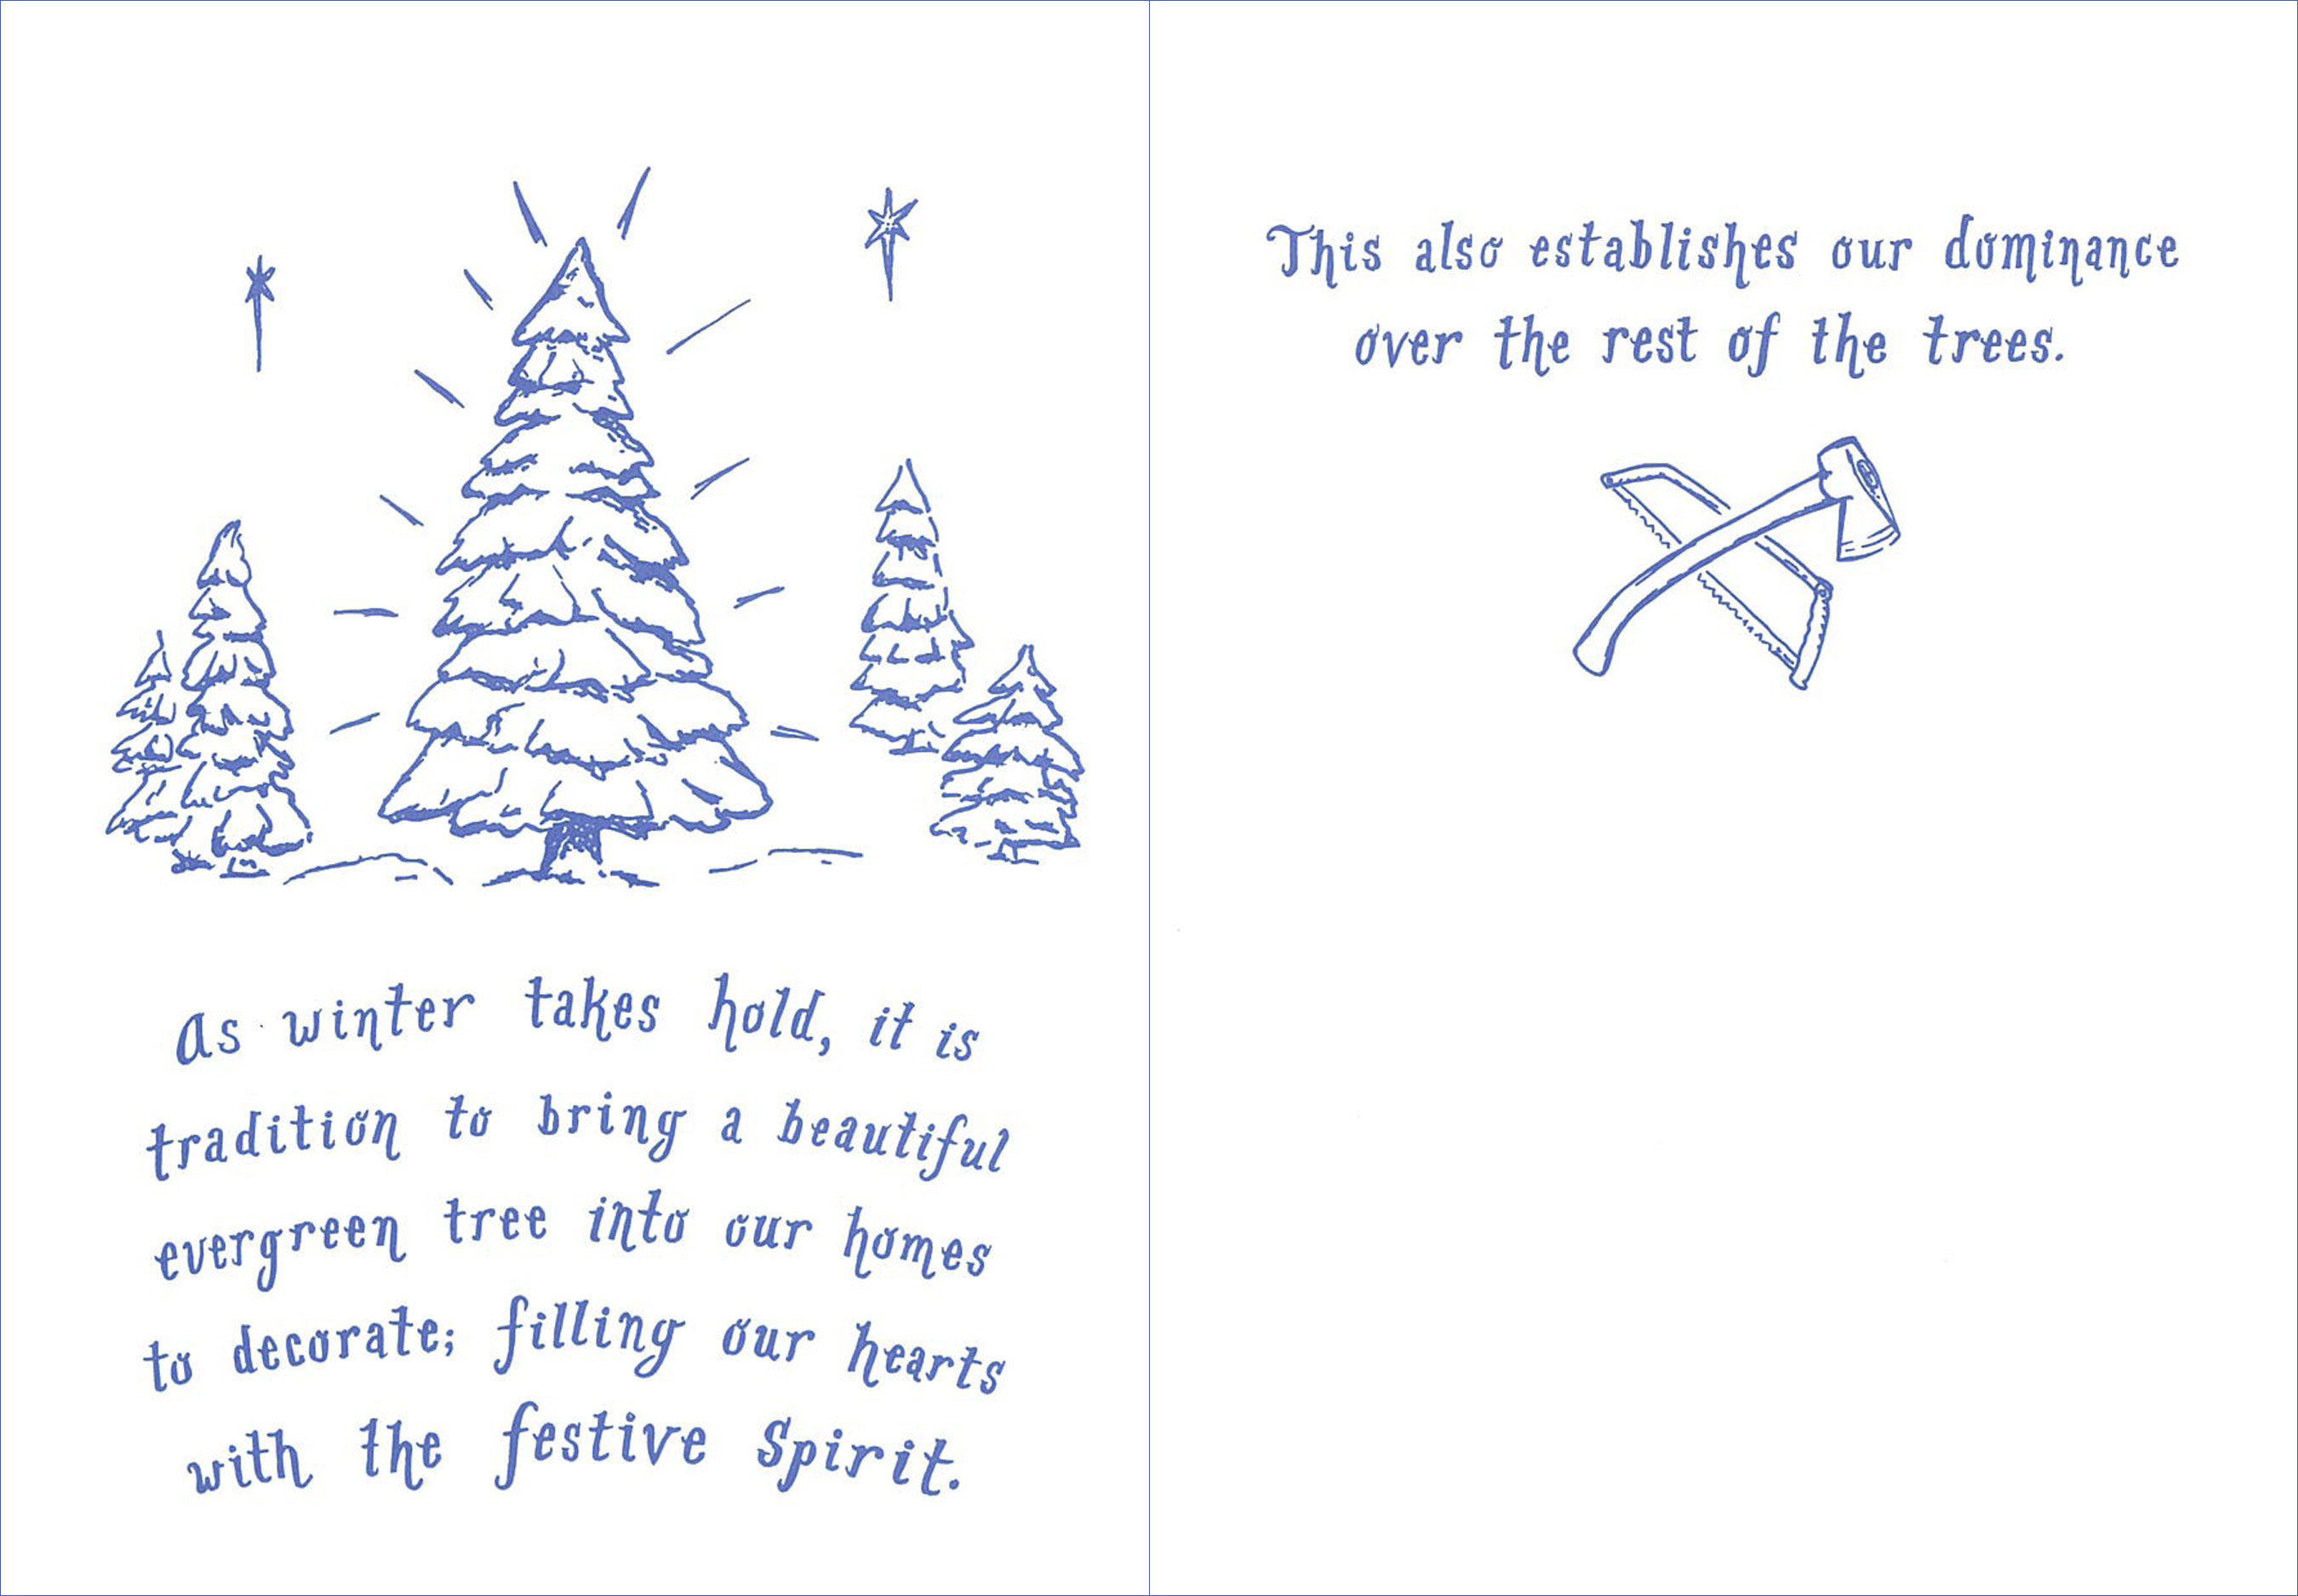 As winter takes hold, it is
tradition to bring a beautiful
evergreen tree into our homes
to decorate; filling our hearts
with the festive spirit.
This also establishes our dominance
over the rest of the trees.